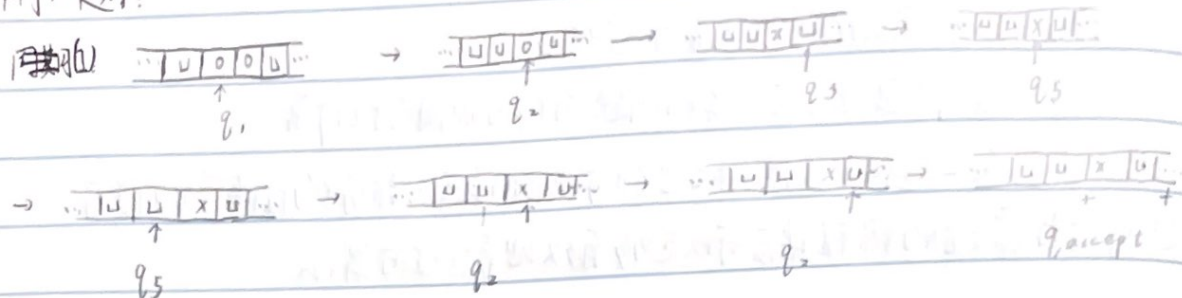 (1) ... ⊔ 0 0 ⊔ ... → ... ⊔ ⊔ 0 ⊔ ... → ... ⊔ ⊔ x ⊔ ... → ... ⊔ ⊔ x ⊔ ...
q₁ q₂ q₃ q₅
→ ... ⊔ ⊔ x ⊔ ... → ... ⊔ ⊔ x ⊔ ... → ... ⊔ ⊔ x ⊔ ... → ... ⊔ ⊔ x ⊔
q₅ q₂ q₂ q accept